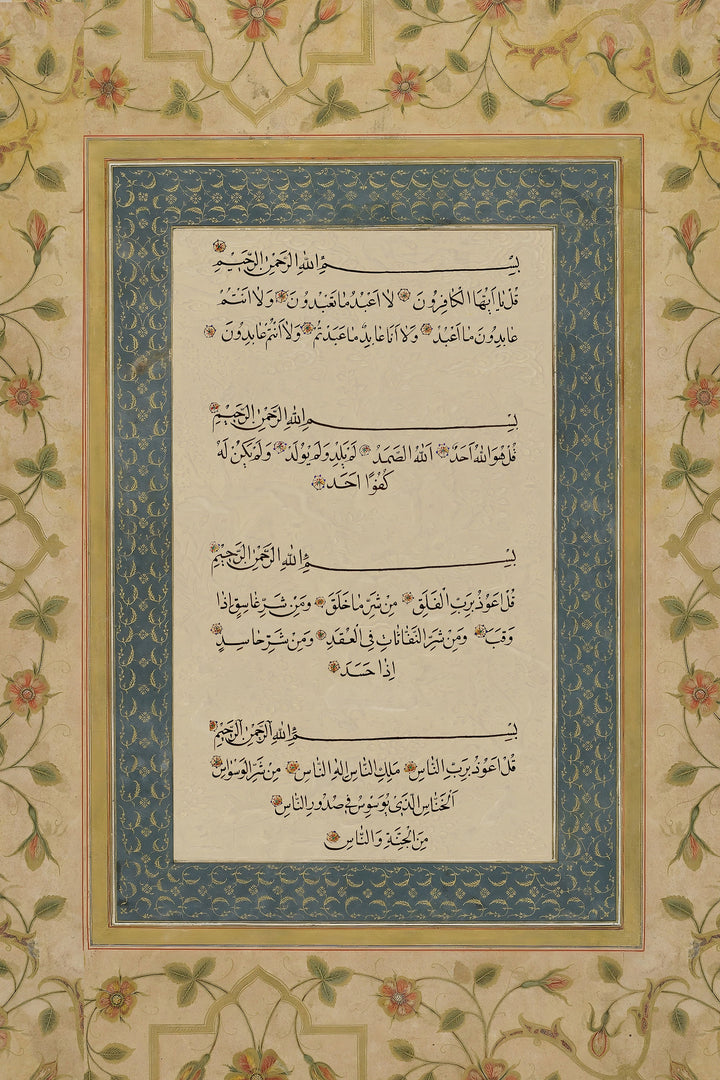 بِسْمِ اللهِ الرَّحْمٰنِ الرَّحِيمِ
قُلْ يَا اَيُّهَا الْكَافِرُونَ لَا اَعْبُدُ مَا تَعْبُدُونَ وَلَا اَنْتُمْ
عَابِدُونَ مَا اَعْبُدُ وَلَا اَنَا عَابِدٌ مَا عَبَدْتُمْ وَلَا اَنْتُمْ عَابِدُونَ
بِسْمِ اللهِ الرَّحْمٰنِ الرَّحِيمِ
قُلْ هُوَ اللهُ اَحَدٌ اَللهُ الصَّمَدُ لَمْ يَلِدْ وَلَمْ يُولَدْ وَلَمْ يَكُنْ لَهُ
كُفُوًا اَحَدٌ
بِسْمِ اللهِ الرَّحْمٰنِ الرَّحِيمِ
قُلْ اَعُوذُ بِرَبِّ الْفَلَقِ مِنْ شَرِّ مَا خَلَقَ وَمِنْ شَرِّ غَاسِقٍ اِذَا
وَقَبَ وَمِنْ شَرِّ النَّفَّاثَاتِ فِي الْعُقَدِ وَمِنْ شَرِّ حَاسِدٍ
اِذَا حَسَدَ
بِسْمِ اللهِ الرَّحْمٰنِ الرَّحِيمِ
قُلْ اَعُوذُ بِرَبِّ النَّاسِ مَلِكِ النَّاسِ اِلٰهِ النَّاسِ مِنْ شَرِّ الْوَسْوَاسِ
اَلْخَنَّاسِ الَّذِي يُوَسْوِسُ فِي صُدُورِ النَّاسِ
مِنَ الْجِنَّةِ وَالنَّاسِ